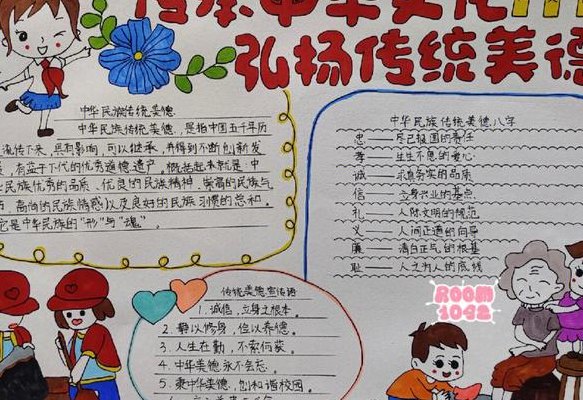 传承中华文化
弘扬传统美德
中华民族传统美德
中华民族传统美德，是指中国五千年历
流传下来，具有影响，可以继承，并得到不断创新发
有益于下代的优秀道德遗产。概括起来就是：中
民族优秀的品质、优良的民族精神、崇高的民族气
高尚的民族情感以及良好的民族习惯的总和。
它是中华民族的"形"与"魂"。
中华民族传统美德八字
忠——尽己报国的责任
孝——生生不息的爱心
诚——求真务实的品质
信——立身兴业的基点
礼——人际文明的规范
义——人间正道的向导
廉——清白正气的根基
耻——人之为人的底线
传统美德宣传语
1. 诚信，立身之根本。
2. 静以修身，俭以养德。
3. 人生在勤，不索何获。
4. 中华美德，永不会忘。
5. 秉中华美德，创和谐校园。
ROOM
1042